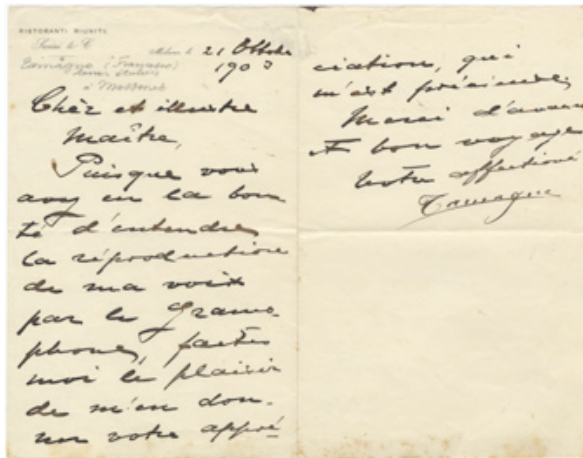 RISTORANTI RIUNITI
Milano le 21 Ottobre
1903
Tamagno (Francesco)
à Massenet
Cher et illustre
Maître,
Puisque vous
avez eu la bon
té d'entendre
la réproduction
de ma voix
par le Gramo-
phone, faites
moi le plaisir
de m'en don-
ner votre appré-
ciation, qui
m'est précieuse,
Merci d'avance
et bon voyage
Votre affectioné
Tamagno